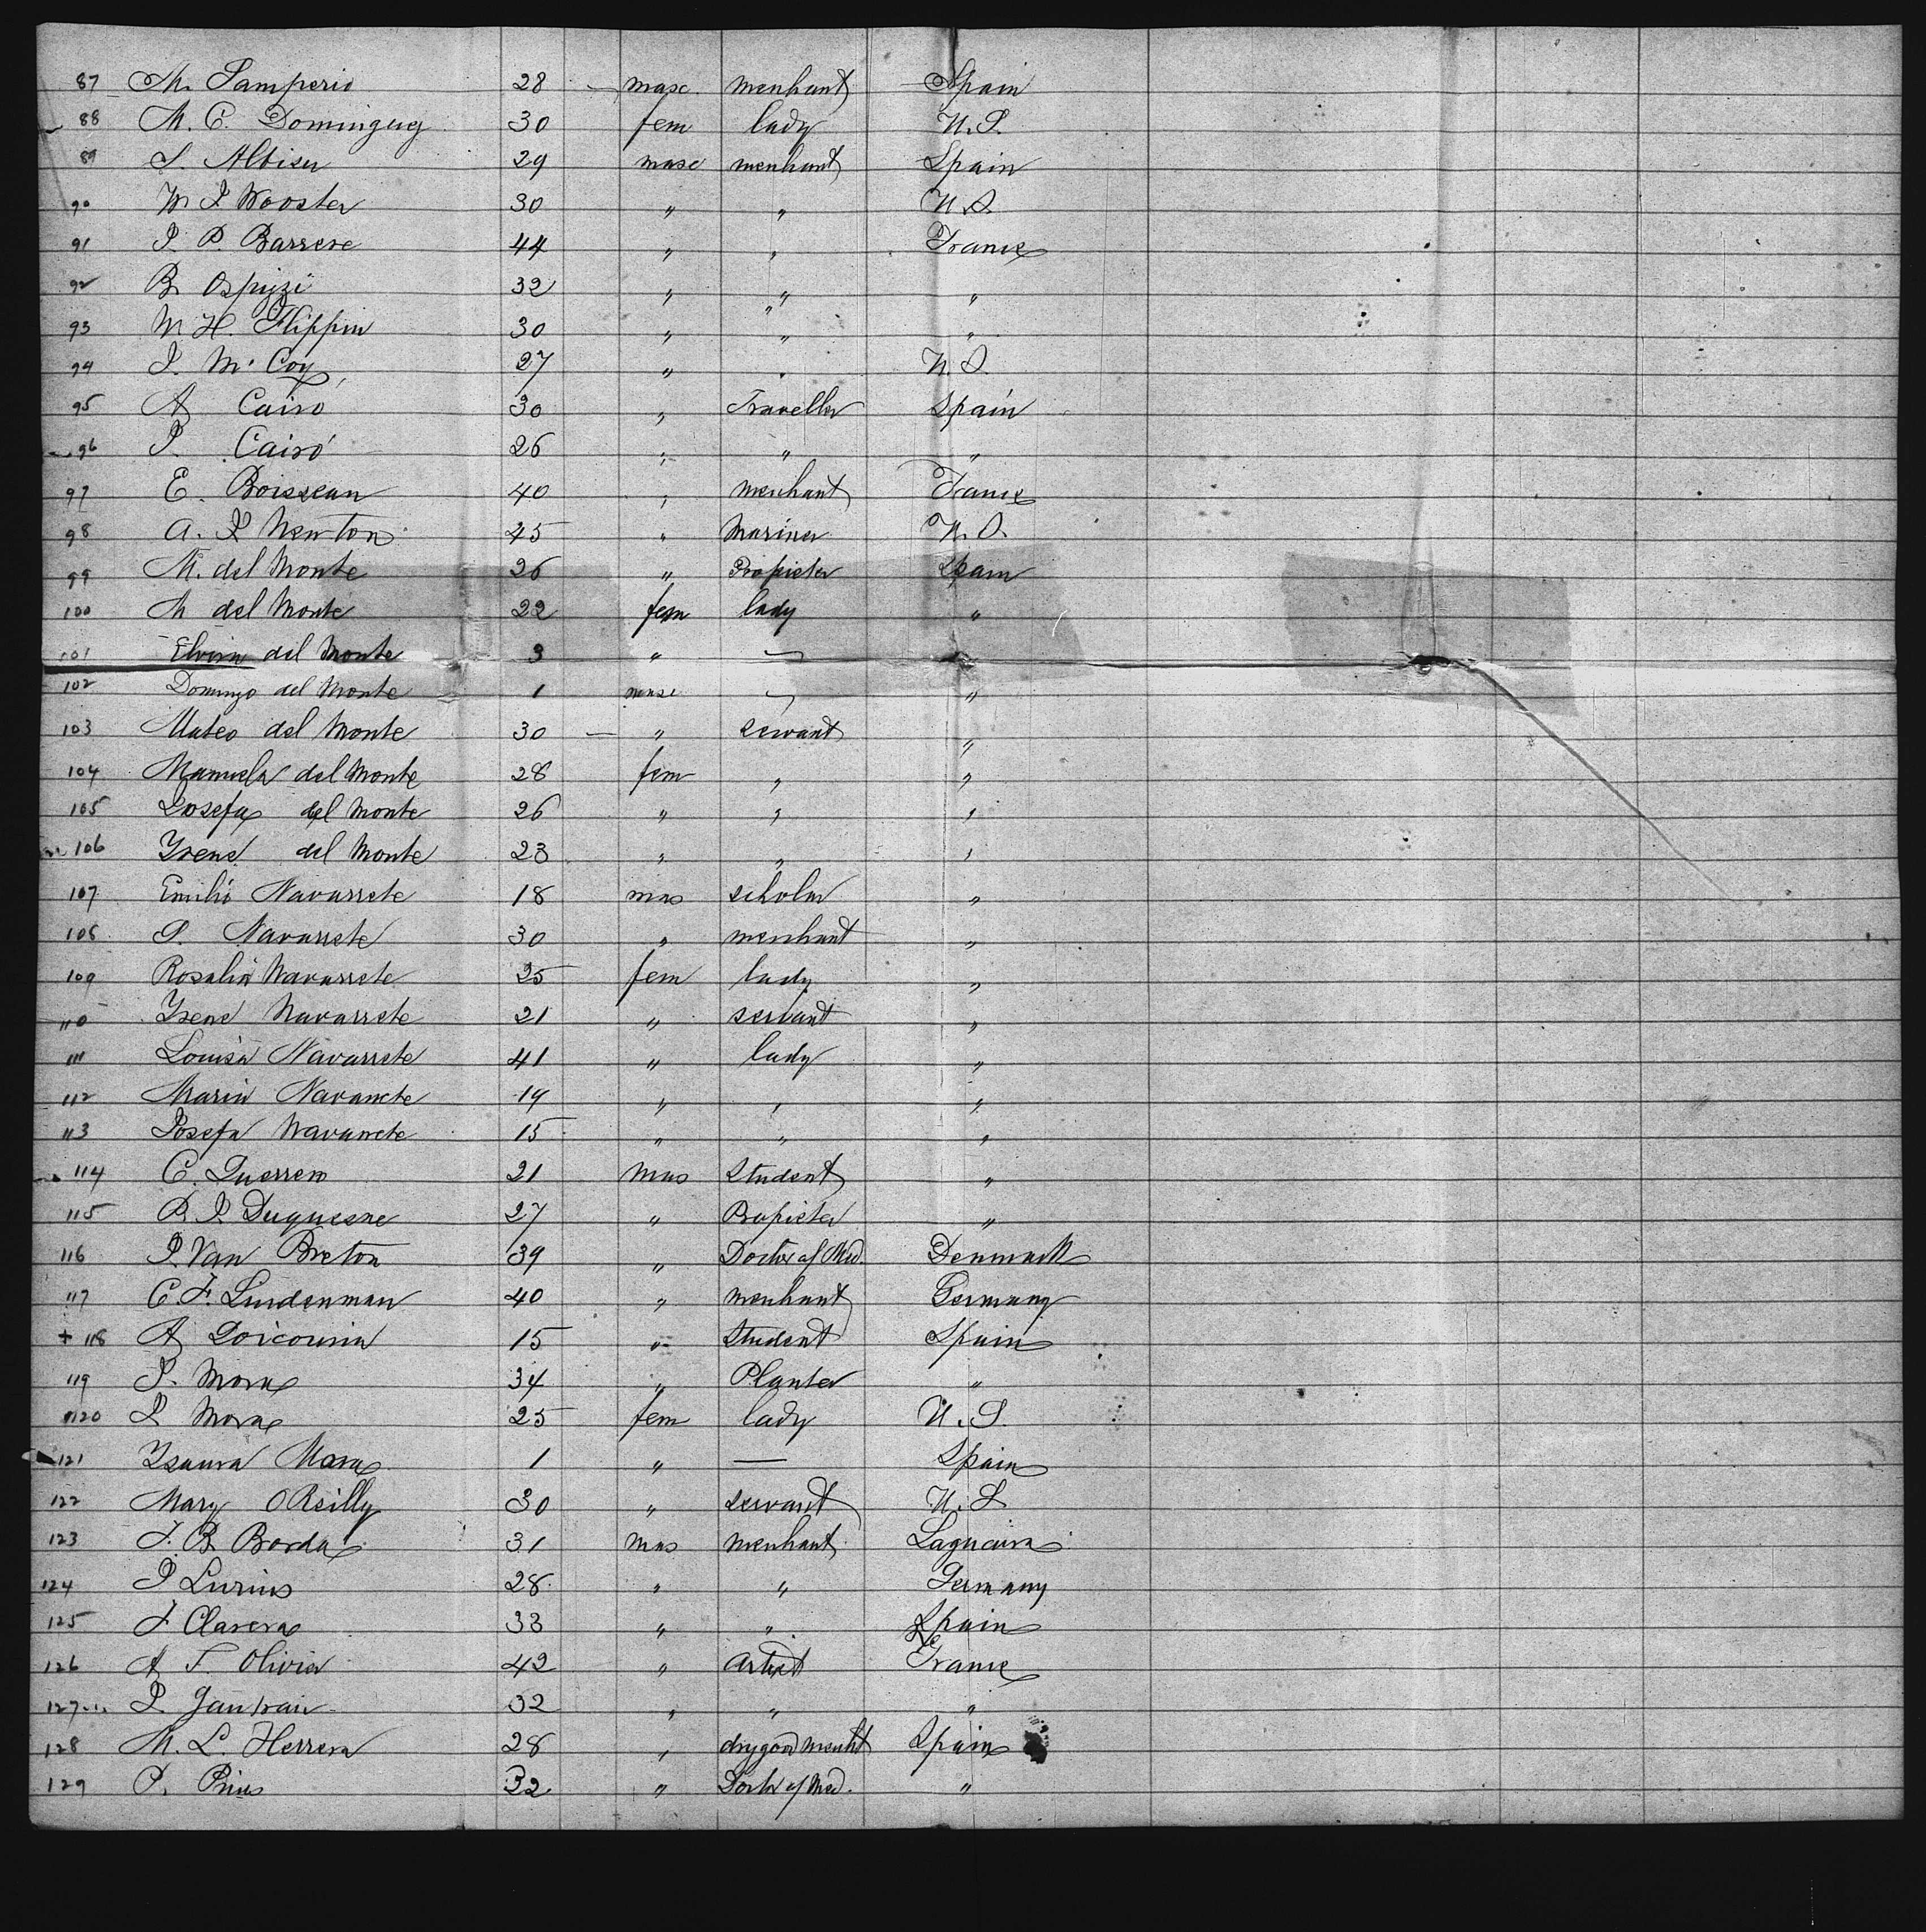 87 M. Samperio 28 — masc. merchant Spain
88 M. C. Dominguez 30 fem lady U.S.
89 S. Albisu 29 masc merchant Spain
90 W J Wooster 30 " " U.S.
91 J. P. Barrere 44 " " France
92 B. 32 " " "
93 W H. Flippin 30 " " "
94 J. McCoy 27 " " U.S.
95 A Cairo 30 " Traveller Spain
96 J. Cairó 26 " " "
97 E. Boisseau 40 " merchant France
98 A. J Newton 45 " Mariner U.S.
99 M. del Monte 26 " Propieter Spain
100 M del Monte 22 fem lady "
101 Elvira del Monte 3 " —
102 Domingo del Monte 1 masc — "
103 Mateo del Monte 30 — " servant "
104 Manuela del Monte 28 fem " "
105 Josefa del Monte 26 " " "
106 Yrene del Monte 23 " " "
107 Emilio Navarrete 18 mas scholar "
108 P. Navarrete 30 " merchant "
109 Rosalia Navarrete 25 fem lady "
110 Yrene Navarrete 21 " servant "
111 Louisa Navarrete 41 " lady "
112 Maria Navarrete 19 " " "
113 Josefa Navarrete 15 " " "
114 C. Guerrero 21 mas Student "
115 P. J. Duquesne 27 " Propieter "
116 J. Van Breton 39 " Doctor of Med. Denmark
117 C. F. Lindenman 40 " merchant Germany
+ 118 A Goicouria 15 " Student Spain
119 J. Mora 34 " Planter "
120 J Mora 25 fem lady U.S.
121 Ysaura Mora 1 " — Spain
122 Mary O Reilly 30 " servant U.S
123 J. B. Borda 31 mas merchant Laguaira
124 J Lurius 28 " " Germany
125 J Clarera 33 " " Spain
126 A F. Olivier 42 " artist France
127 J. 32 " " "
128 M. L. Herrera 28 " drygood mercht Spain
129 P. 32 " Doctor of Med. "